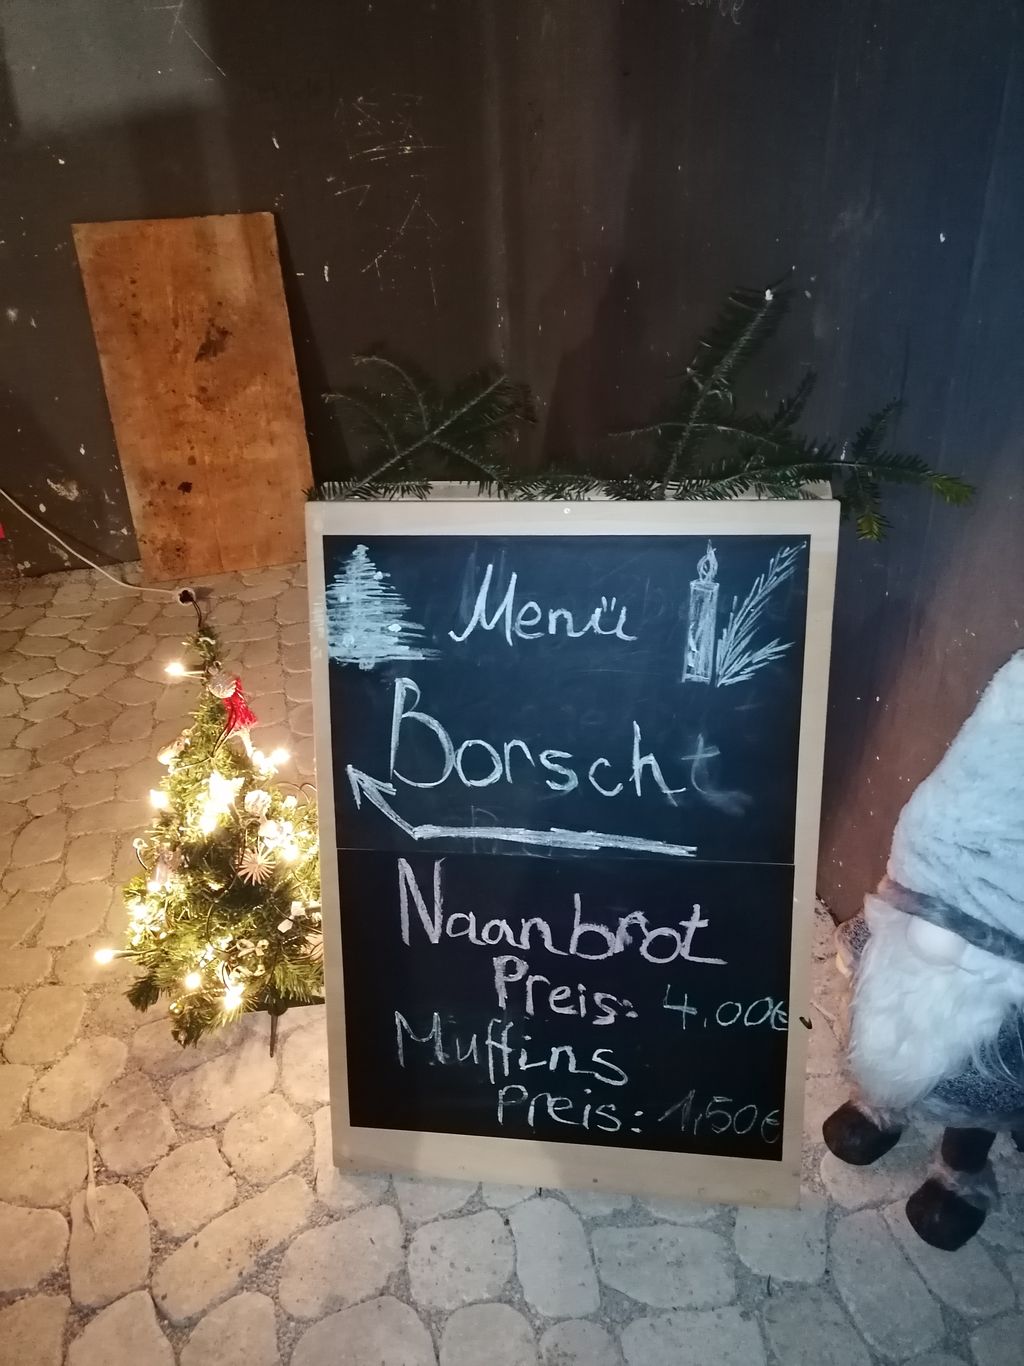 Menü
Borscht
Naanbrot
Preis: 4,00€
Muffins
Preis: 1,50€